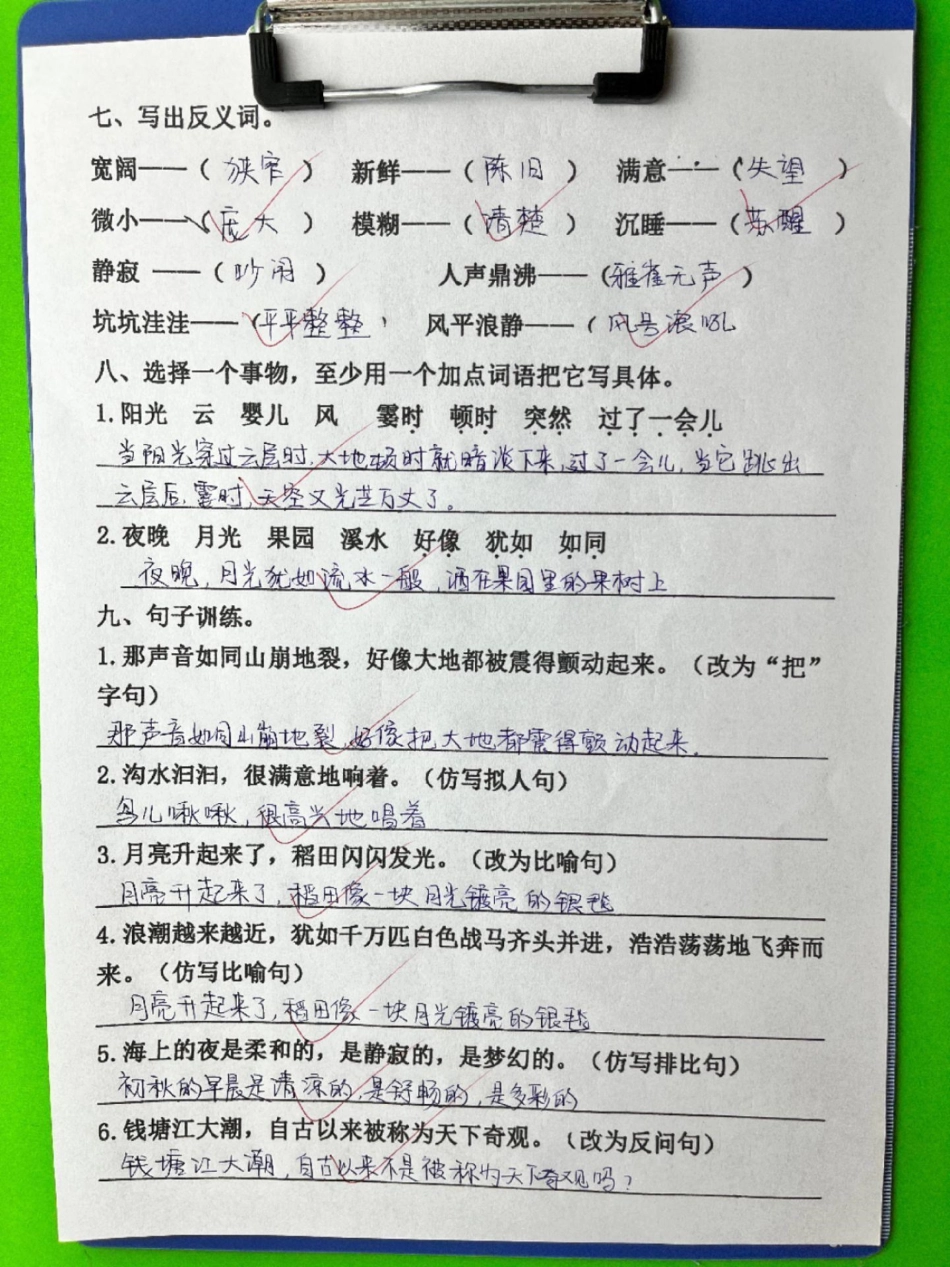 七、写出反义词。
宽阔——（狭窄） 新鲜——（陈旧） 满意——（失望）
微小——（庞大） 模糊——（清楚） 沉睡——（苏醒）
静寂 ——（吵闹） 人声鼎沸——（雅雀无声）
坑坑洼洼——（平平整整） 风平浪静——（风号浪吼
八、选择一个事物，至少用一个加点词语把它写具体。
1.阳光 云 婴儿 风 霎时 顿时 突然 过了一会儿
当阳光穿过云层时,大地顿时就暗淡下来,过了一会儿,当它跳出
云层后,霎时,天空又光芒万丈了。
2.夜晚 月光 果园 溪水 好像 犹如 如同
夜晚,月光犹如流水一般,洒在果园里的果树上
九、句子训练。
1.那声音如同山崩地裂，好像大地都被震得颤动起来。（改为“把”
字句）
那声音如同山崩地裂,好像把大地都震得颤动起来.
2.沟水汩汩，很满意地响着。（仿写拟人句）
鸟儿啾啾,很高兴地唱着
3.月亮升起来了，稻田闪闪发光。（改为比喻句）
月亮升起来了,稻田像一块月光镀亮的银毯
4.浪潮越来越近，犹如千万匹白色战马齐头并进，浩浩荡荡地飞奔而
来。（仿写比喻句）
月亮升起来了,稻田像一块月光镀亮的银毯
5.海上的夜是柔和的，是静寂的，是梦幻的。（仿写排比句）
初秋的早晨是清凉的,是舒畅的,是多彩的
6.钱塘江大潮，自古以来被称为天下奇观。（改为反问句）
钱塘江大潮,自古以来不是被称为天下奇观吗?